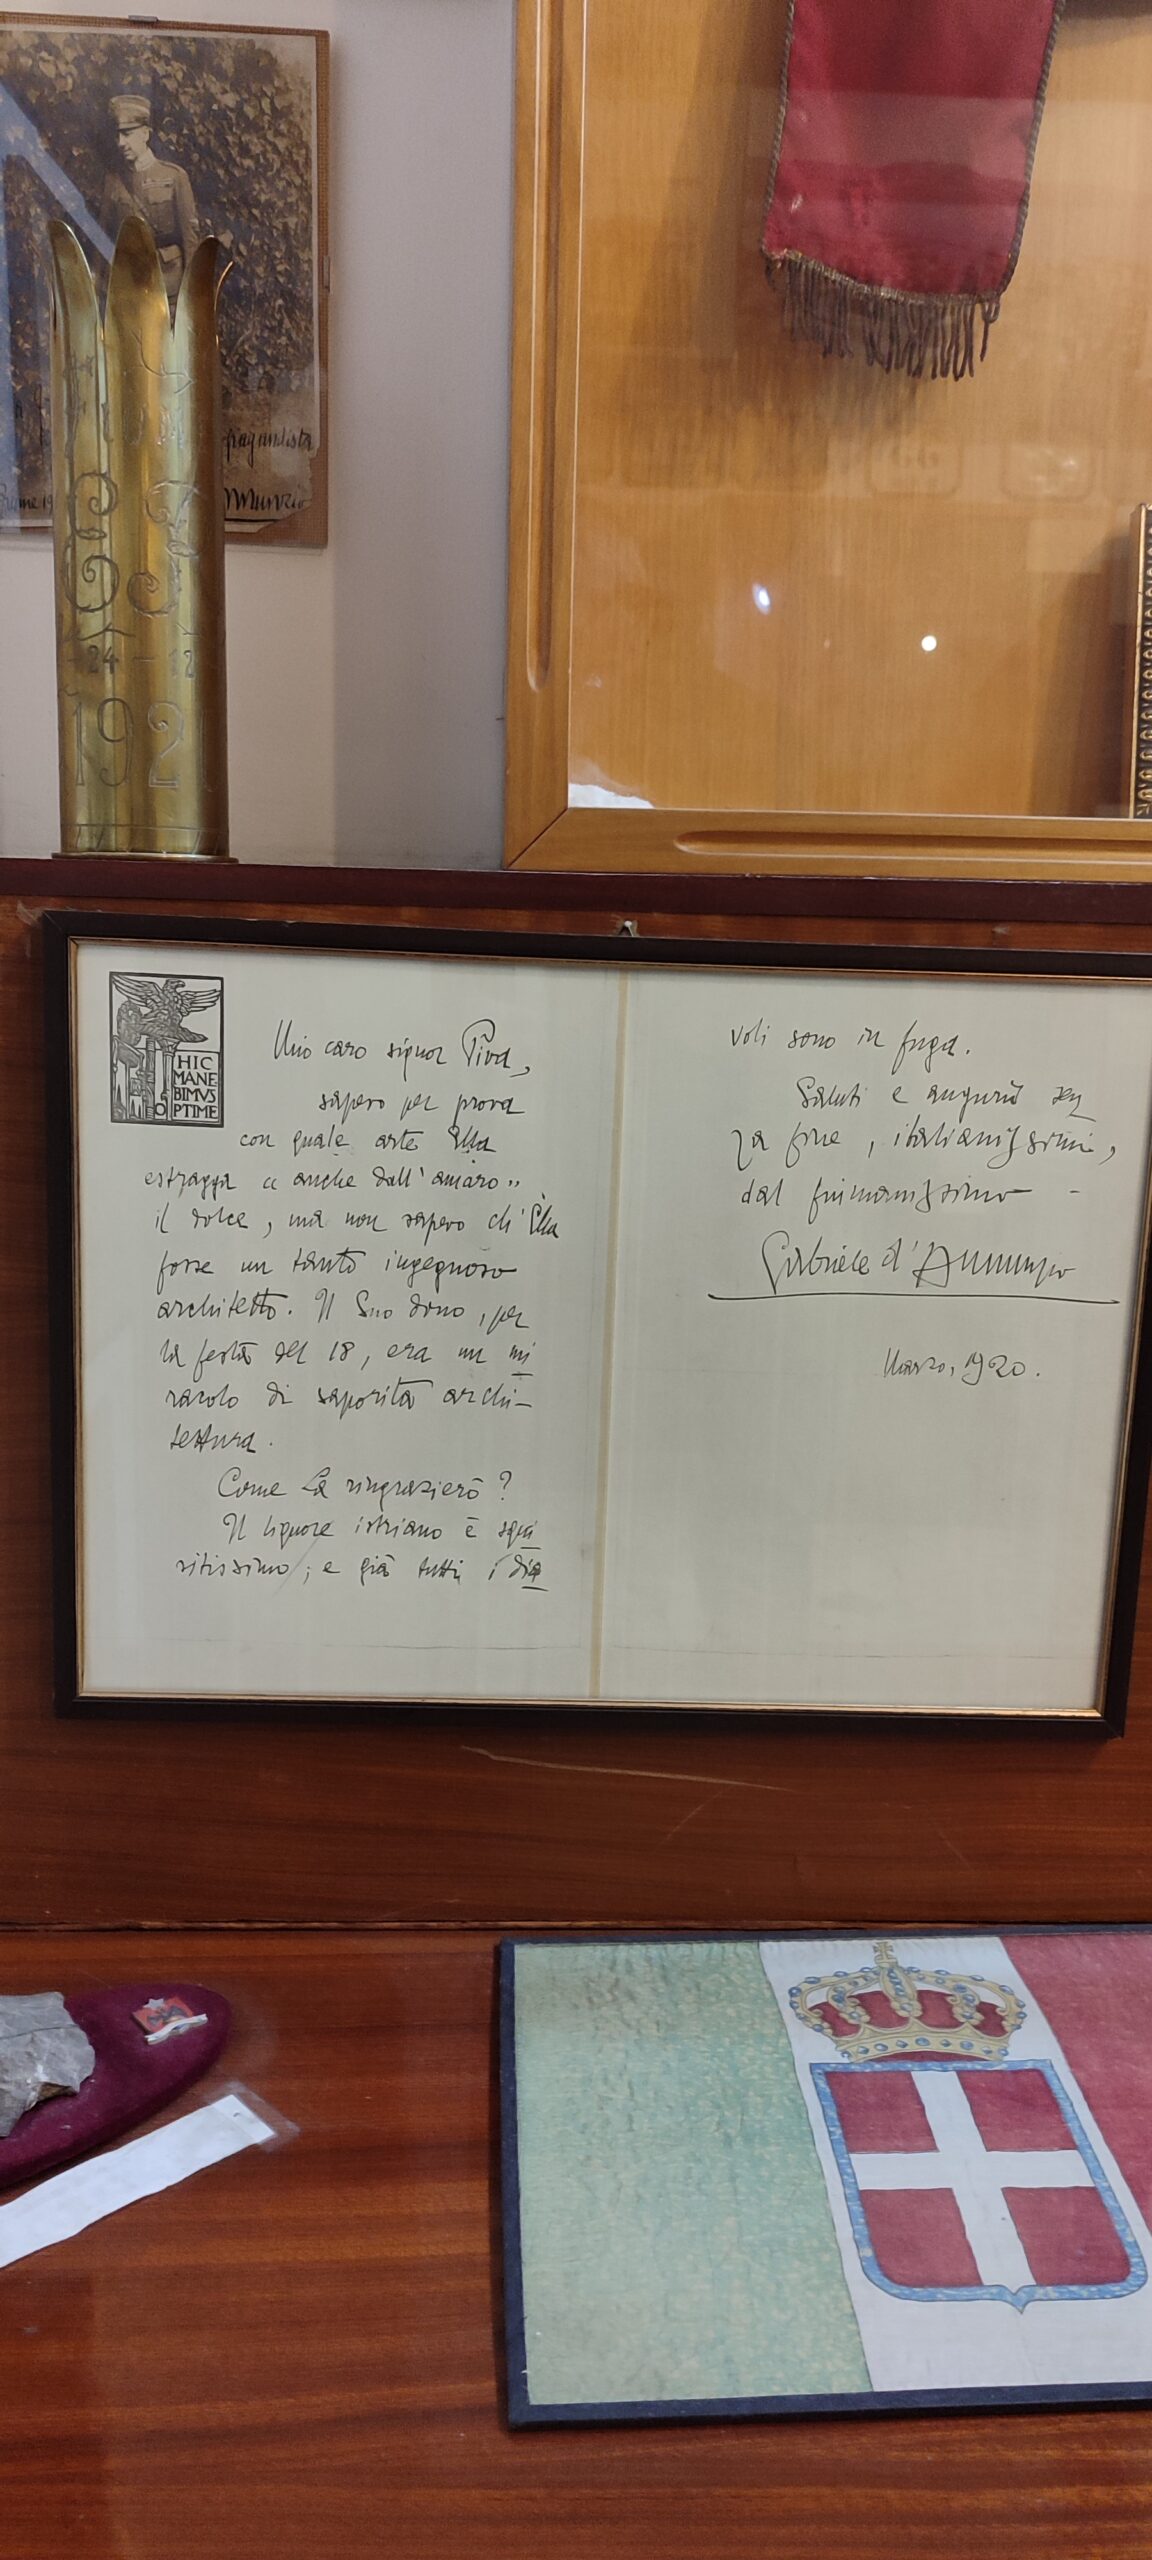 pagandista
Fiume 19
24-12
1921
HIC
MANE
BIMVS
OPTIME
Mio caro signor Piva,
sapevo per prova
con quale arte Ella
estragga anche dall'amaro
il dolce, ma non sapevo ch'Ella
fosse un tanto ingegnoso
architetto. Il Suo dono, per
la festa del 18, era un mi
racolo di saporita archi-
tettura.
Come La ringrazierò?
Il liquore istriano è squi
sitissimo; e già tutti i dia
voli sono in fuga.
Saluti e augurii sen
za fine, italianissimi,
dal fiumanissimo -
Gabriele d'Annunzio
Marzo, 1920.